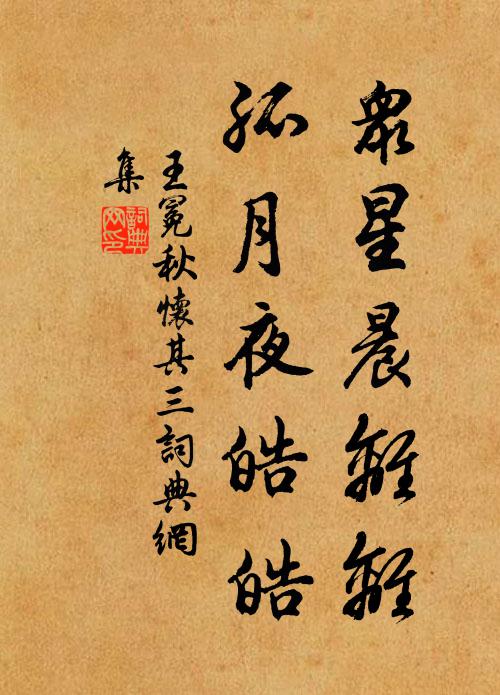 眾星晨離離
孤月夜皓皓
王冕秋懷其三詞典網
集
詞典網印